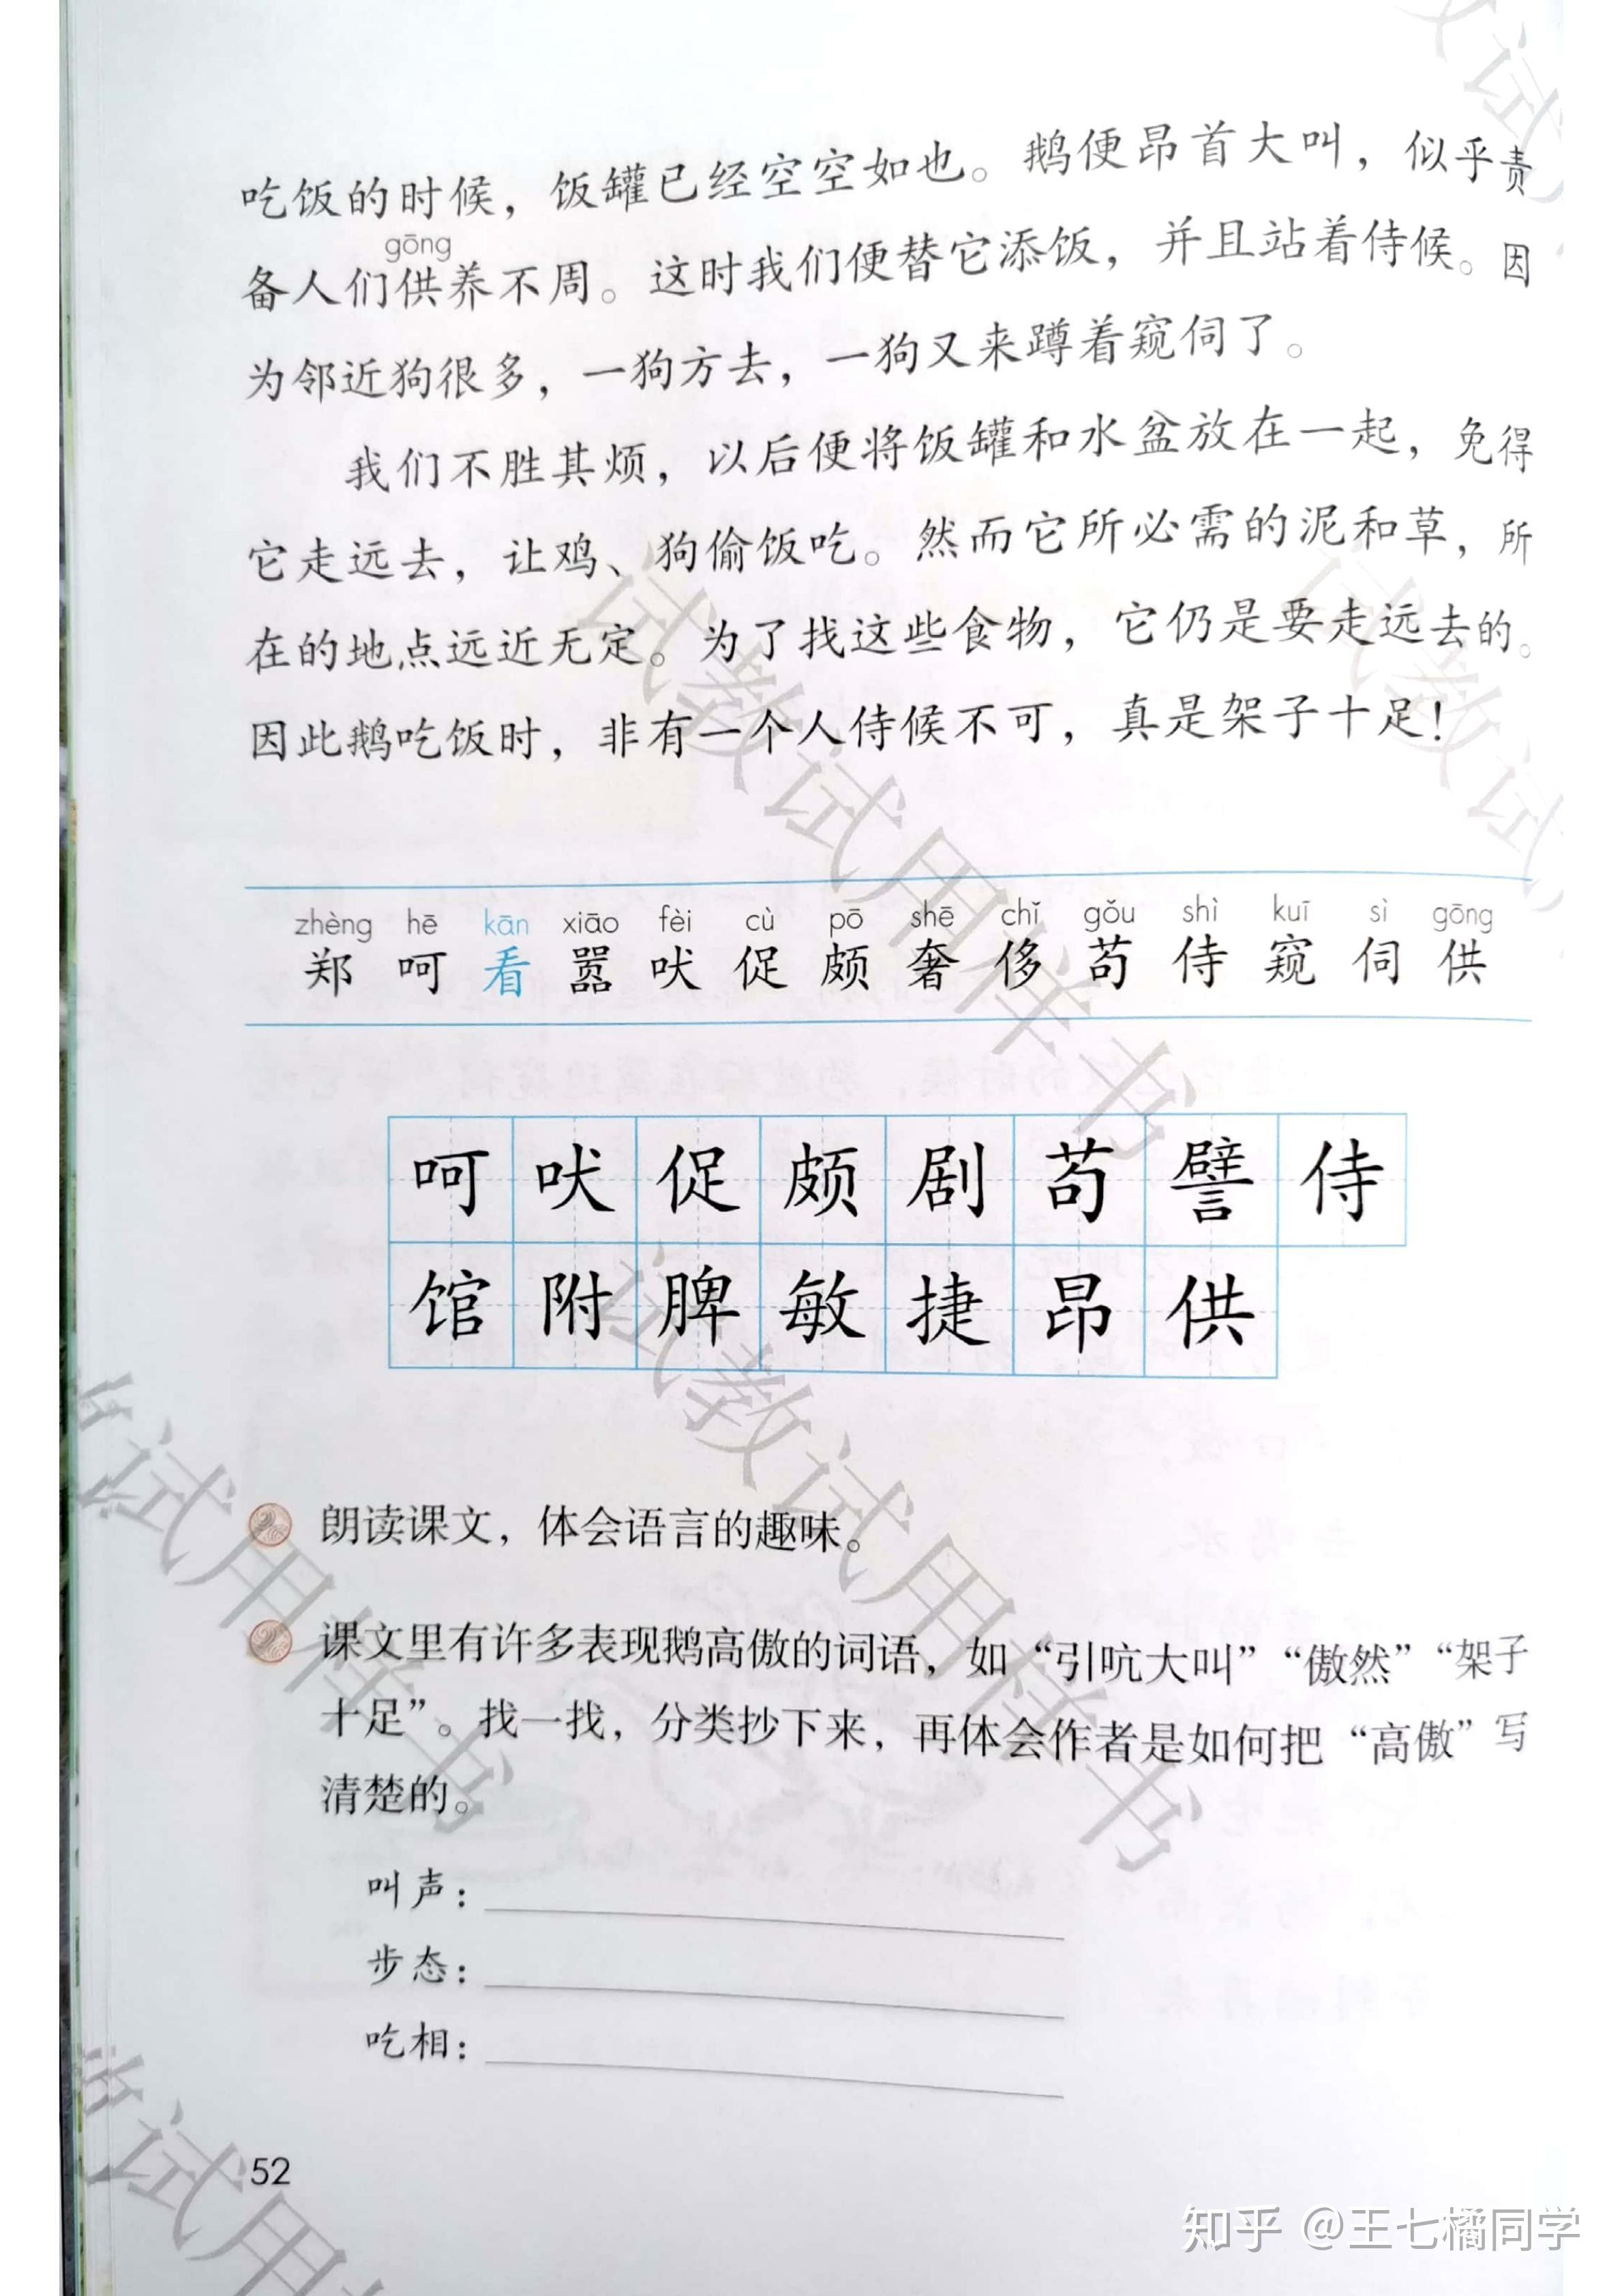 吃饭的时候，饭罐已经空空如也。鹅便昂首大叫，似乎责
gōng
备人们供养不周。这时我们便替它添饭，并且站着侍候。因
为邻近狗很多，一狗方去，一狗又来蹲着窥伺了。
我们不胜其烦，以后便将饭罐和水盆放在一起，免得
它走远去，让鸡、狗偷饭吃。然而它所必需的泥和草，所
在的地点远近无定。为了找这些食物，它仍是要走远去的。
因此鹅吃饭时，非有一个人侍候不可，真是架子十足！
zhèng hē kān xiāo fèi cù pō shē chǐ gǒu shì kuī sì gōng
郑 呵 看 嚣 吠 促 颇 奢 侈 苟 侍 窥 伺 供
呵 吠 促 颇 剧 苟 譬 侍
馆 附 脾 敏 捷 昂 供
朗读课文，体会语言的趣味。
课文里有许多表现鹅高傲的词语，如“引吭大叫”“傲然”“架子
十足”。找一找，分类抄下来，再体会作者是如何把“高傲”写
清楚的。
叫声：
步态：
吃相：
52
试教试用样书
试教试用样书
试教试用样书
知乎 @王七橘同学